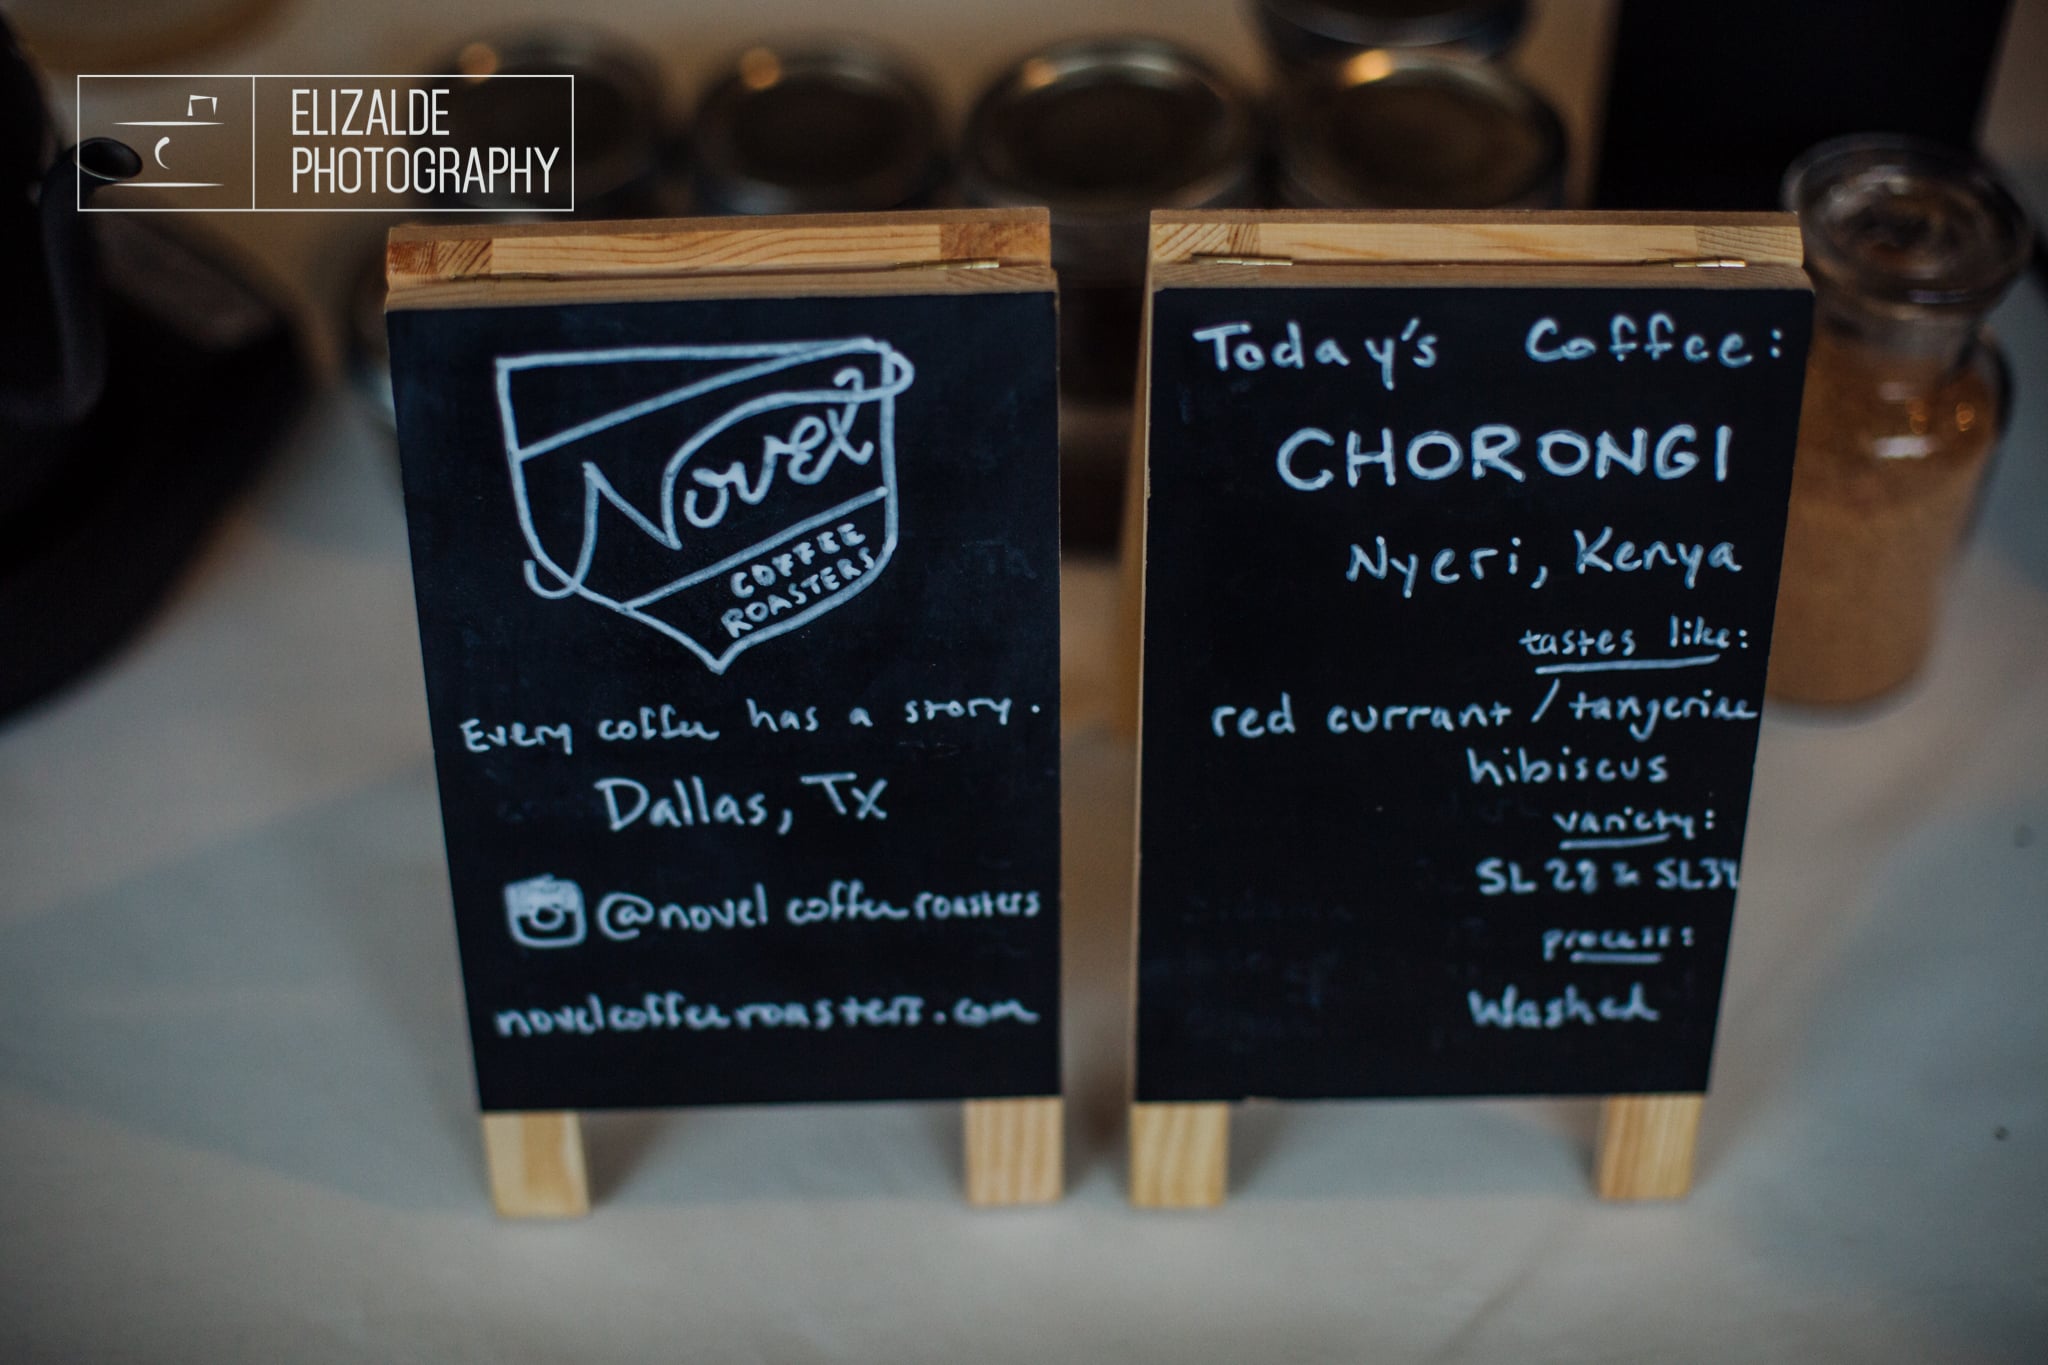 ELIZALDE
PHOTOGRAPHY
Novel
COFFEE
ROASTERS
Every coffee has a story.
Dallas, Tx
@novelcoffeeroasters
novelcoffeeroasters.com
Today's Coffee:
CHORONGI
Nyeri, Kenya
tastes like:
red currant / tangerine
hibiscus
variety:
SL 28 & SL34
process:
Washed